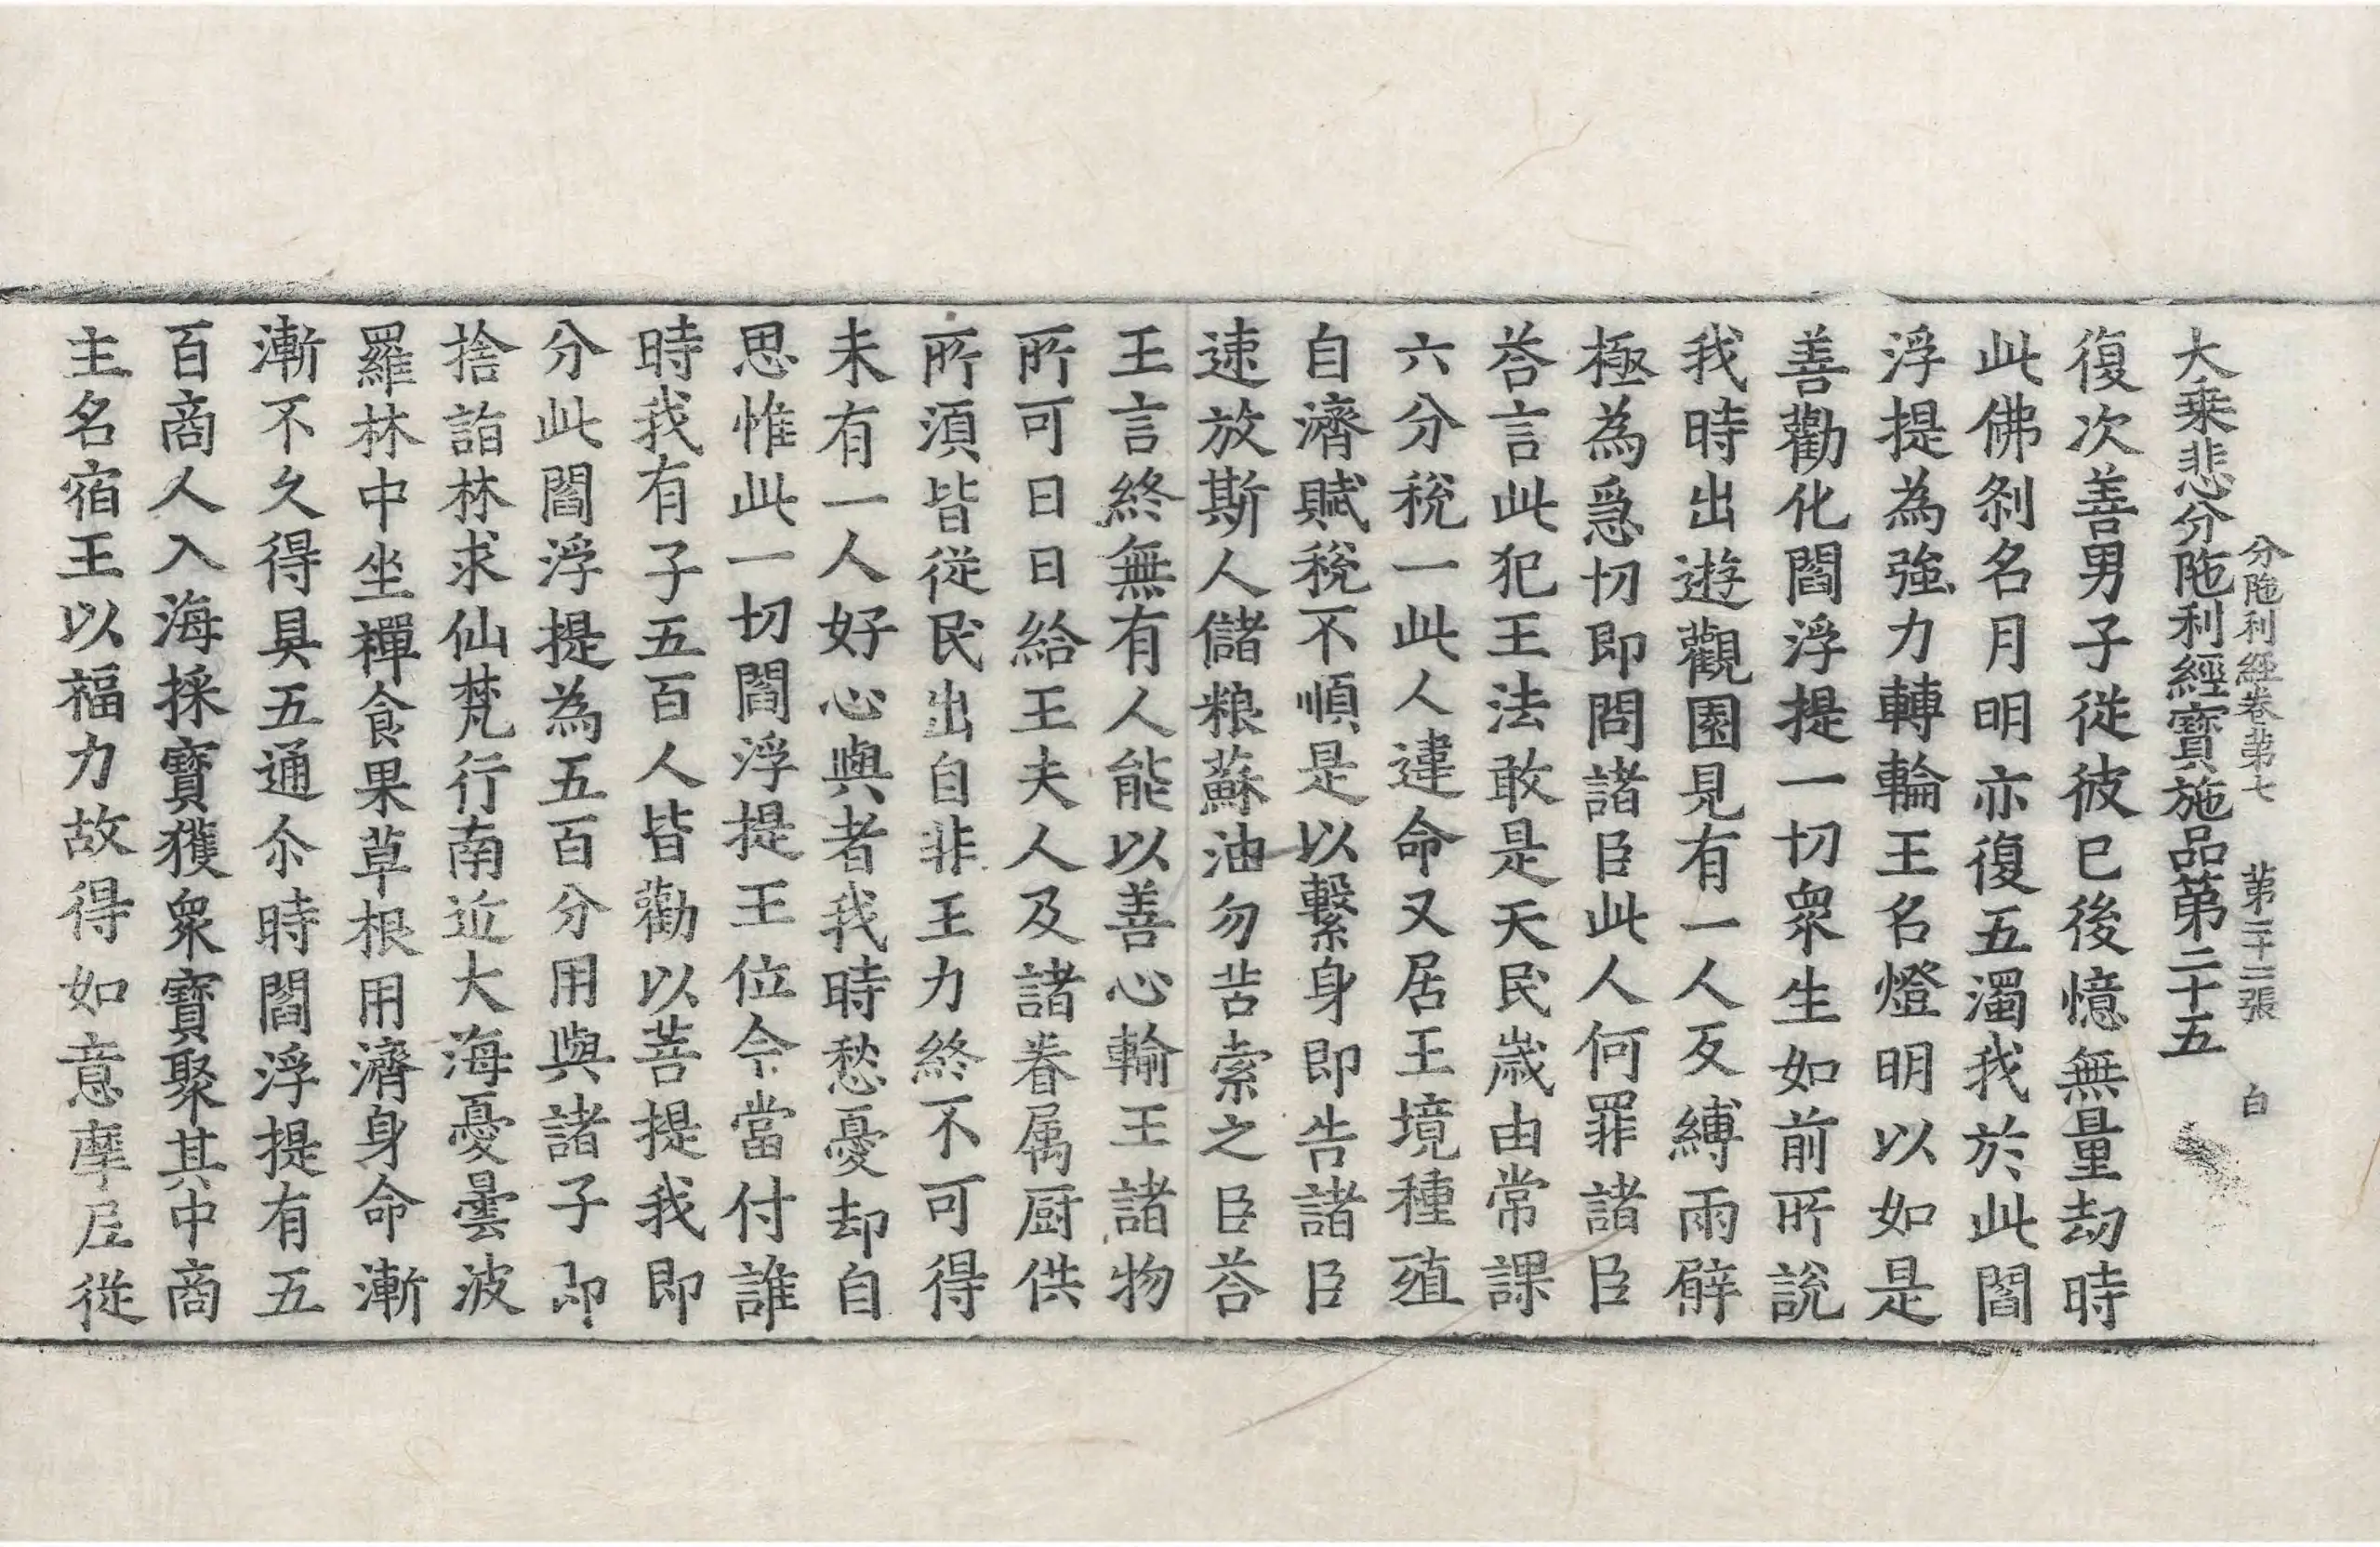 分陁利經卷苐七 苐二十二張 白
大乗悲分陁利經寳施品苐二十五
復次善男子從彼已後憶無量劫時
此佛刹名月明亦復五濁我於此閻
浮提為強力轉輪王名燈明以如是
善勸化閻浮提一切衆生如前所說
我時出遊觀園見有一人反縛兩臂
極為急切即問諸臣此人何罪諸臣
荅言此犯王法敢是天民歲由常課
六分稅一此人違命又居王境種殖
自濟賦稅不順是以繫身即告諸臣
速放斯人儲粮蘇油勿苦索之臣荅
王言終無有人能以善心輸王諸物
所可日日給王夫人及諸眷属厨供
所湏皆從民出自非王力終不可得
未有一人好心與者我時愁憂却自
思惟此一切閻浮提王位令當付誰
時我有子五百人皆勸以菩提我即
分此閻浮提為五百分用與諸子即
捨詣林求仙梵行南近大海憂曇波
羅林中坐禪食果草根用濟身命漸
漸不久得具五通尒時閻浮提有五
百商人入海採寳獲衆寳聚其中商
主名宿王以福力故得如意摩尼從